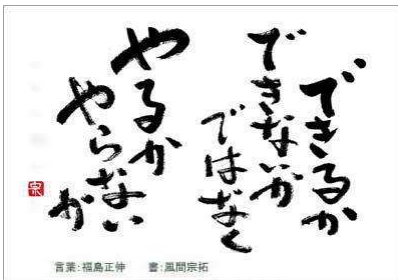 できるか
できないか
ではなく
やるか
やらない
か
言葉:福島正伸 書:風間宗拓